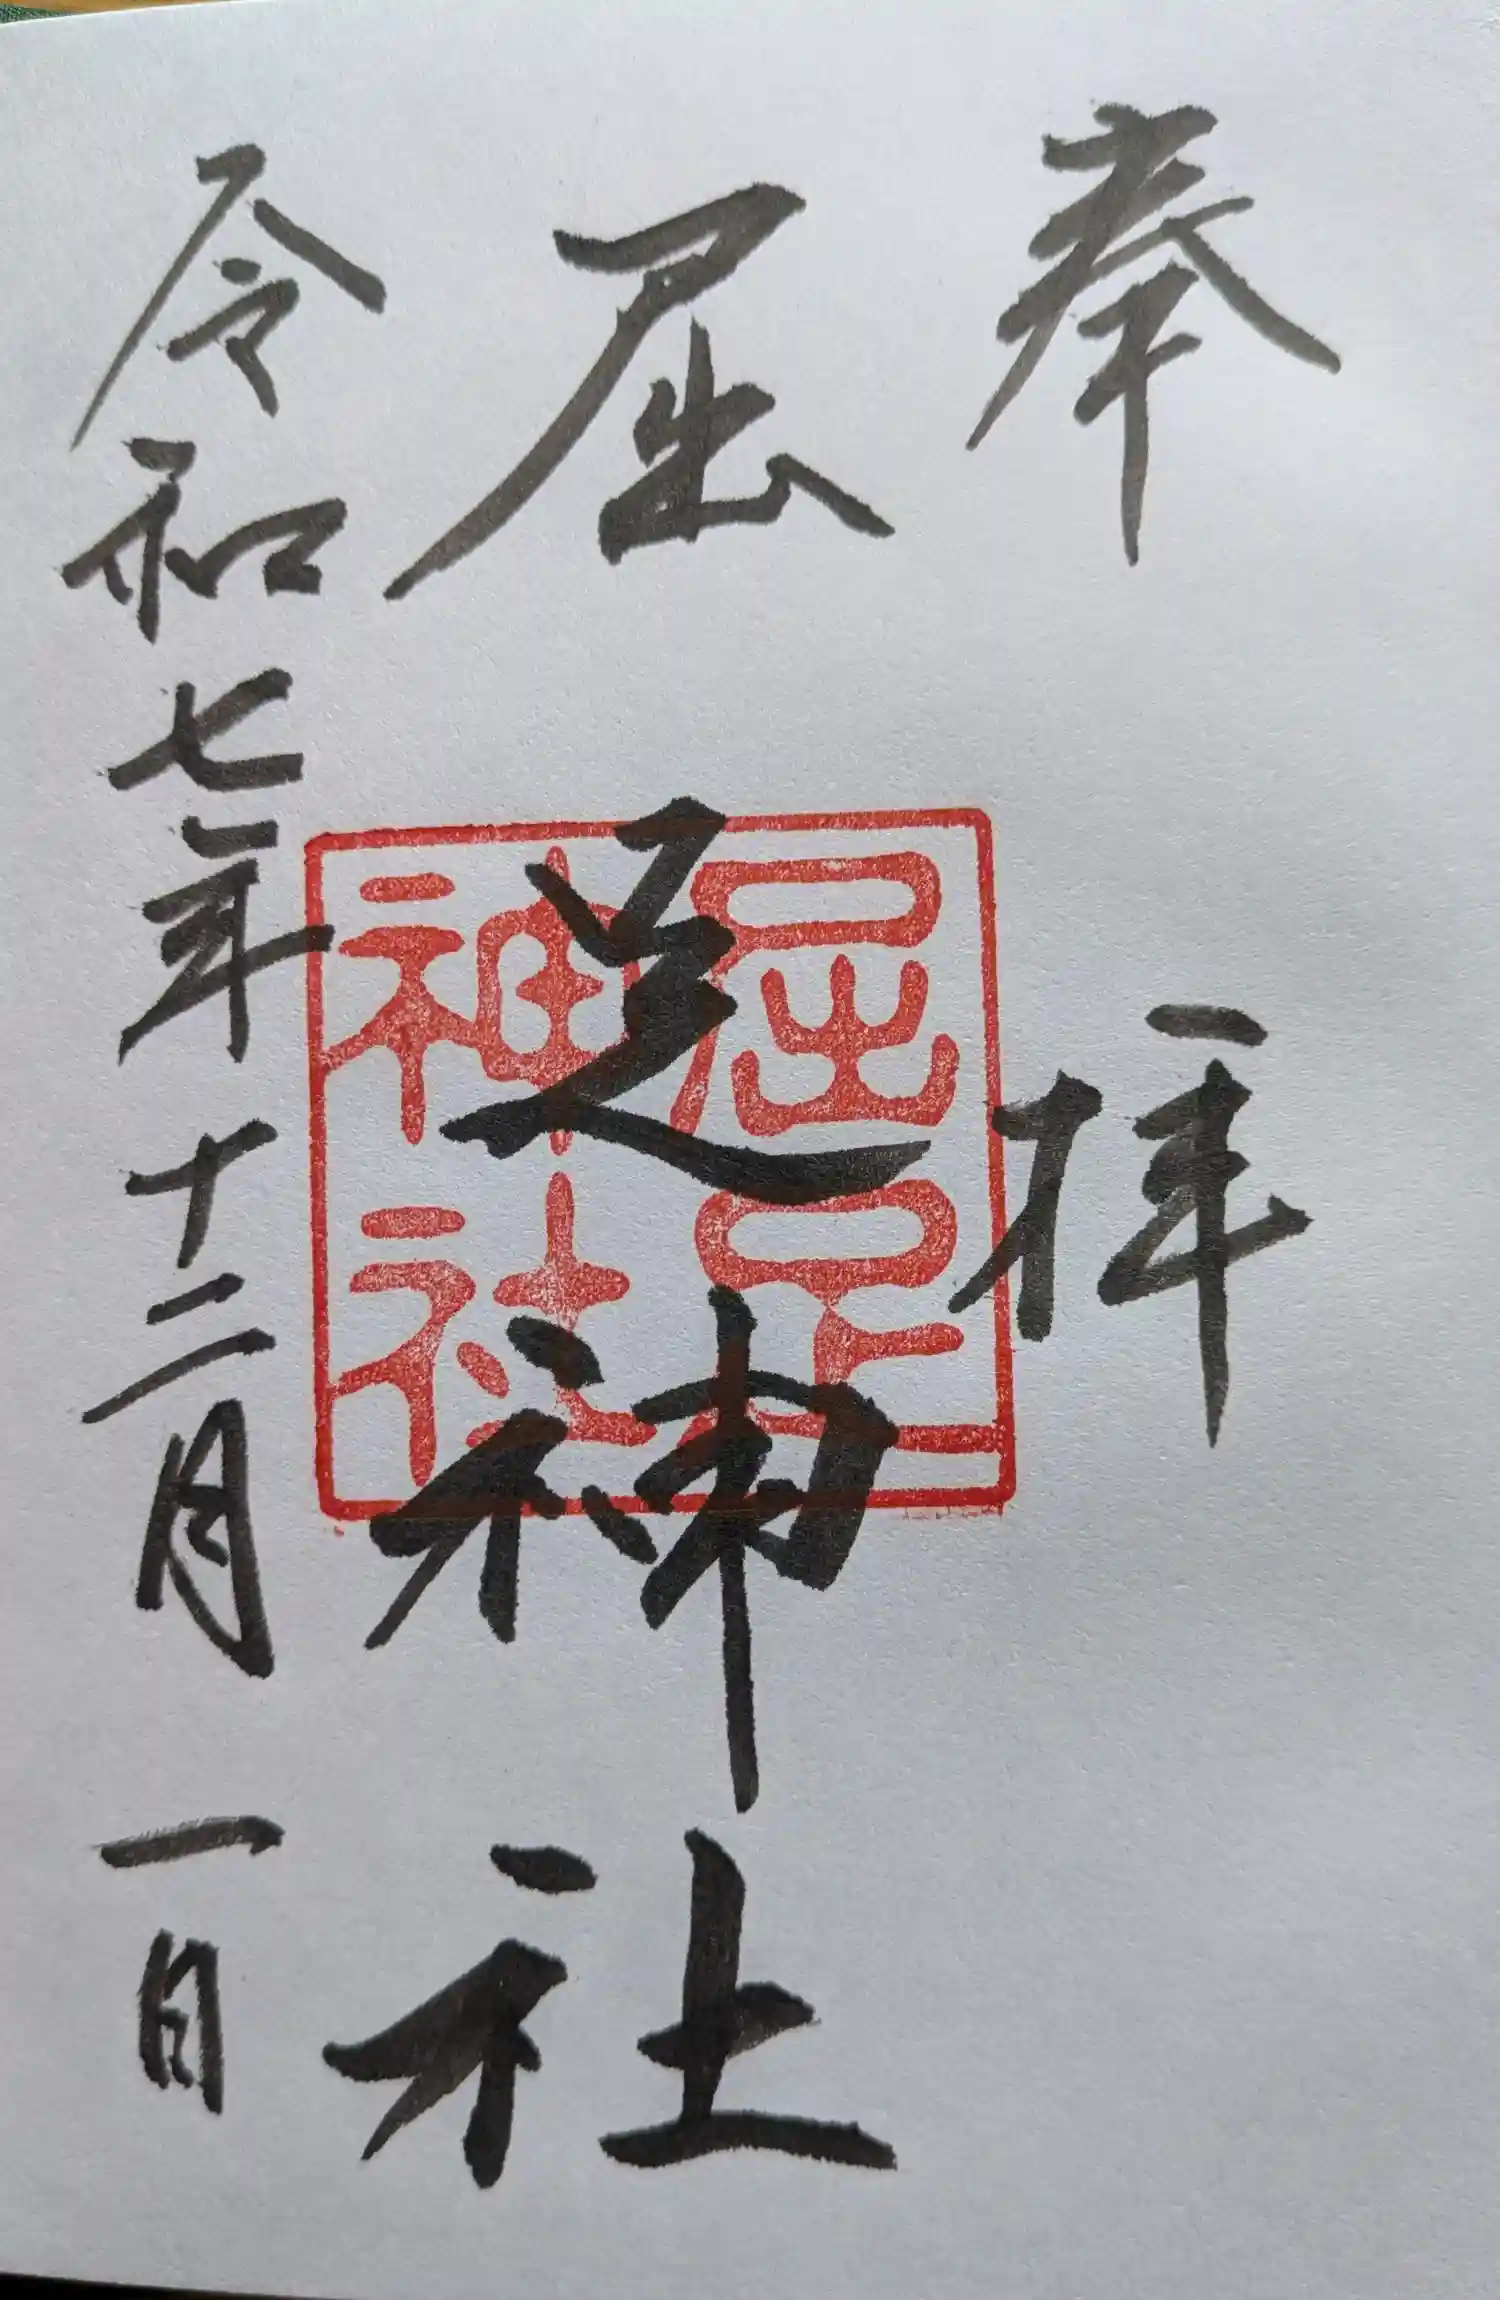 奉拝
屈足神社
屈足
神社
令和七年十二月一日